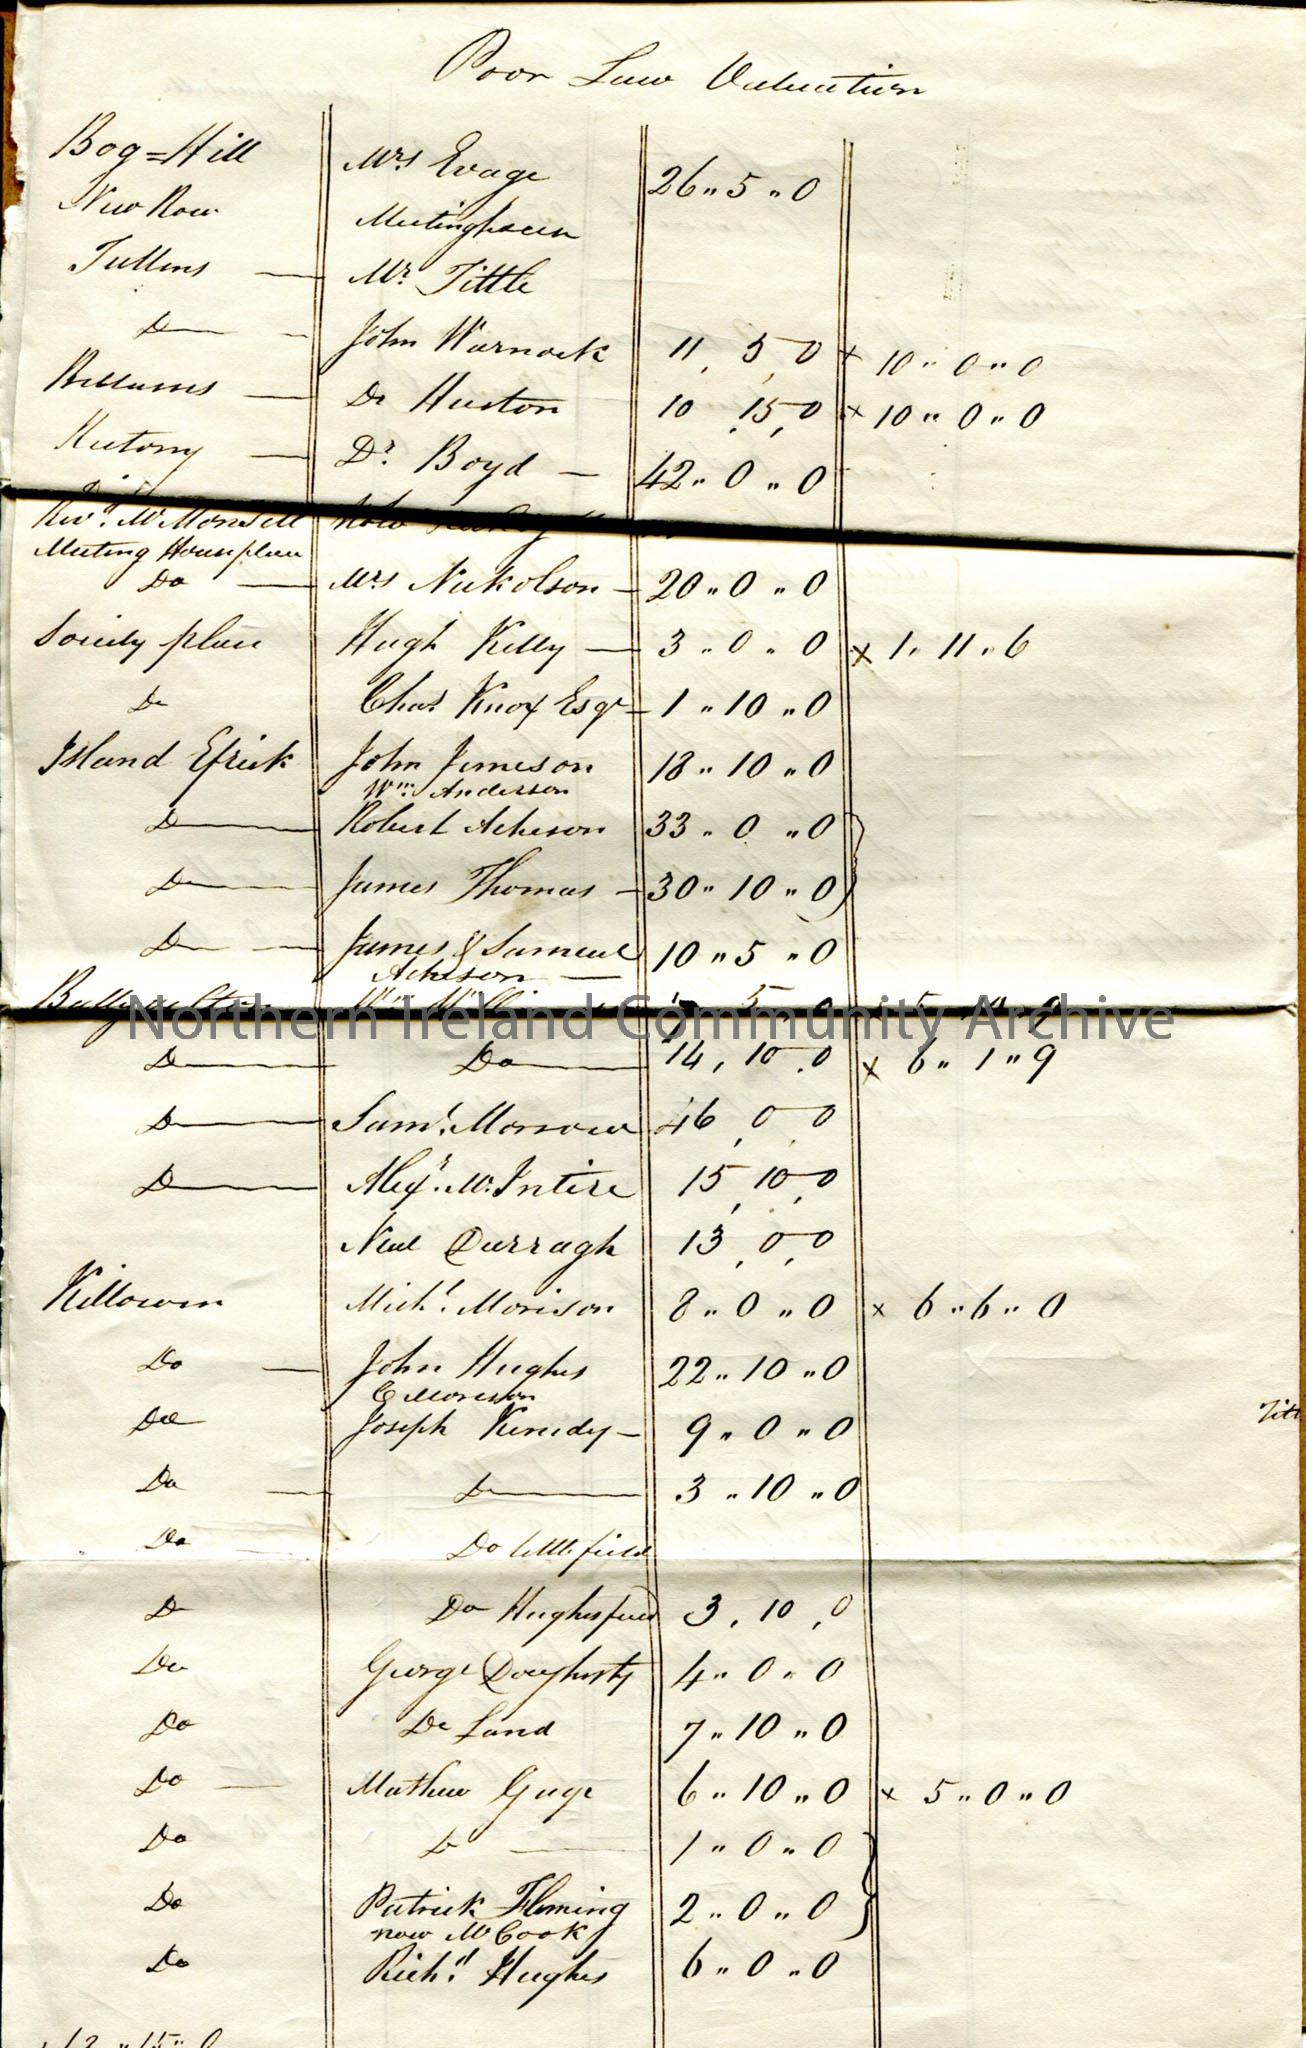 Poor Law Valuation
Bog=Hill Mrs Evage 26 " 5 " 0
New Row Meetinghouse
Tullens — Mr. Tittle
Do — John Warnock 11 , 5 , 0 x 10 " 0 " 0
— Do Huston 10 , 15 , 0 x 10 " 0 " 0
— Dr. Boyd — 42 " 0 " 0
Revd. Mr Monsell
Meeting House place
Do — Mrs Nickolson — 20 " 0 " 0
Society place Hugh Kelly — 3 " 0 " 0 x 1 " 11 " 6
Do Chas Knox Esqr — 1 " 10 " 0
Island Efrick John Jameson 18 " 10 " 0
Wm. Anderson
Do — Robert Acheson 33 " 0 " 0
Do — James Thomas — 30 " 10 " 0
Do — James & Samuel 10 " 5 " 0
Acheson —
Northern Ireland Community Archive
Do — Do — 14 , 10 , 0 x 6 " 1 " 9
Do — Saml. Morrow 46 , 0 , 0
Do — Alexr. McIntire 15 , 10 , 0
Neal Darragh 13 , 0 , 0
Killowen Michl. Morison 8 " 0 " 0 x 6 " 6 " 0
Do — John Hughes 22 " 10 " 0
C Morison
Do Joseph Kenedy — 9 " 0 " 0
Do — Do — 3 " 10 " 0
Do Do little field
Do Do Hughes field 3 , 10 , 0
Do George Dougherty 4 " 0 " 0
Do Do Land 7 " 10 " 0
Do — Mathew Gage 6 " 10 " 0 x 5 " 0 " 0
Do Do — 1 " 0 " 0
Do Patrick Fleming 2 " 0 " 0
now McCook
Do Richd. Hughes 6 " 0 " 0